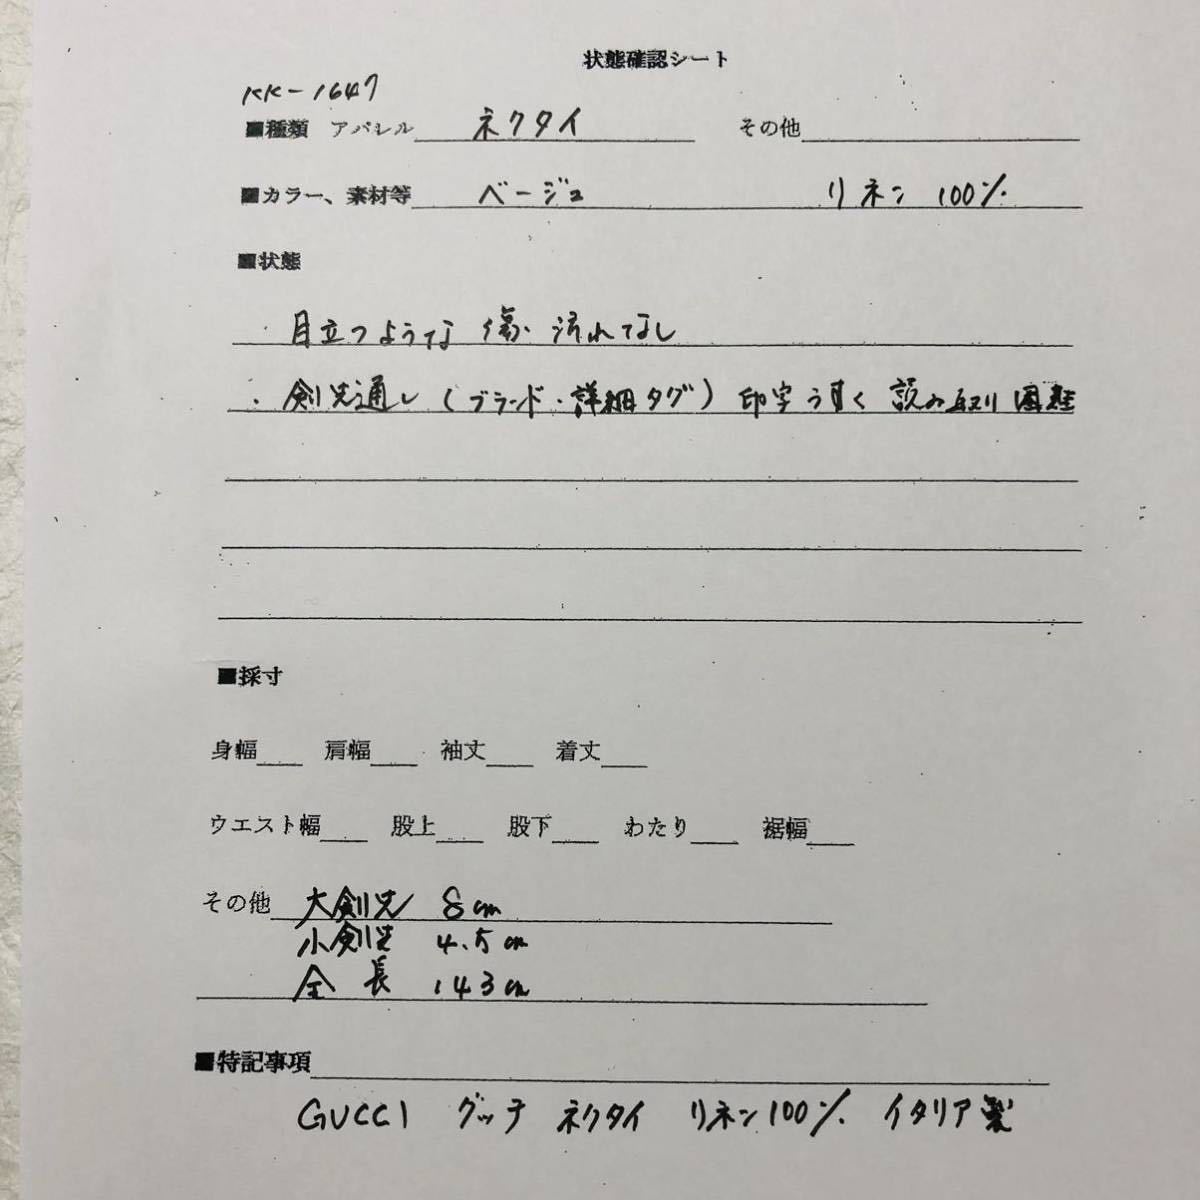 状態確認シート
KK-1647
■種類 アパレル ネクタイ その他
■カラー、素材等 ベージュ リネン 100%
■状態
・目立つような 傷、汚れてなし
・剣先通し(ブランド・詳細タグ)印字うすく 読み取り困難
■採寸
身幅 肩幅 袖丈 着丈
ウエスト幅 股上 股下 わたり 裾幅
その他 大剣先 8cm
小剣先 4.5cm
全長 143cm
■特記事項
GUCCI グッチ ネクタイ リネン100% イタリア製